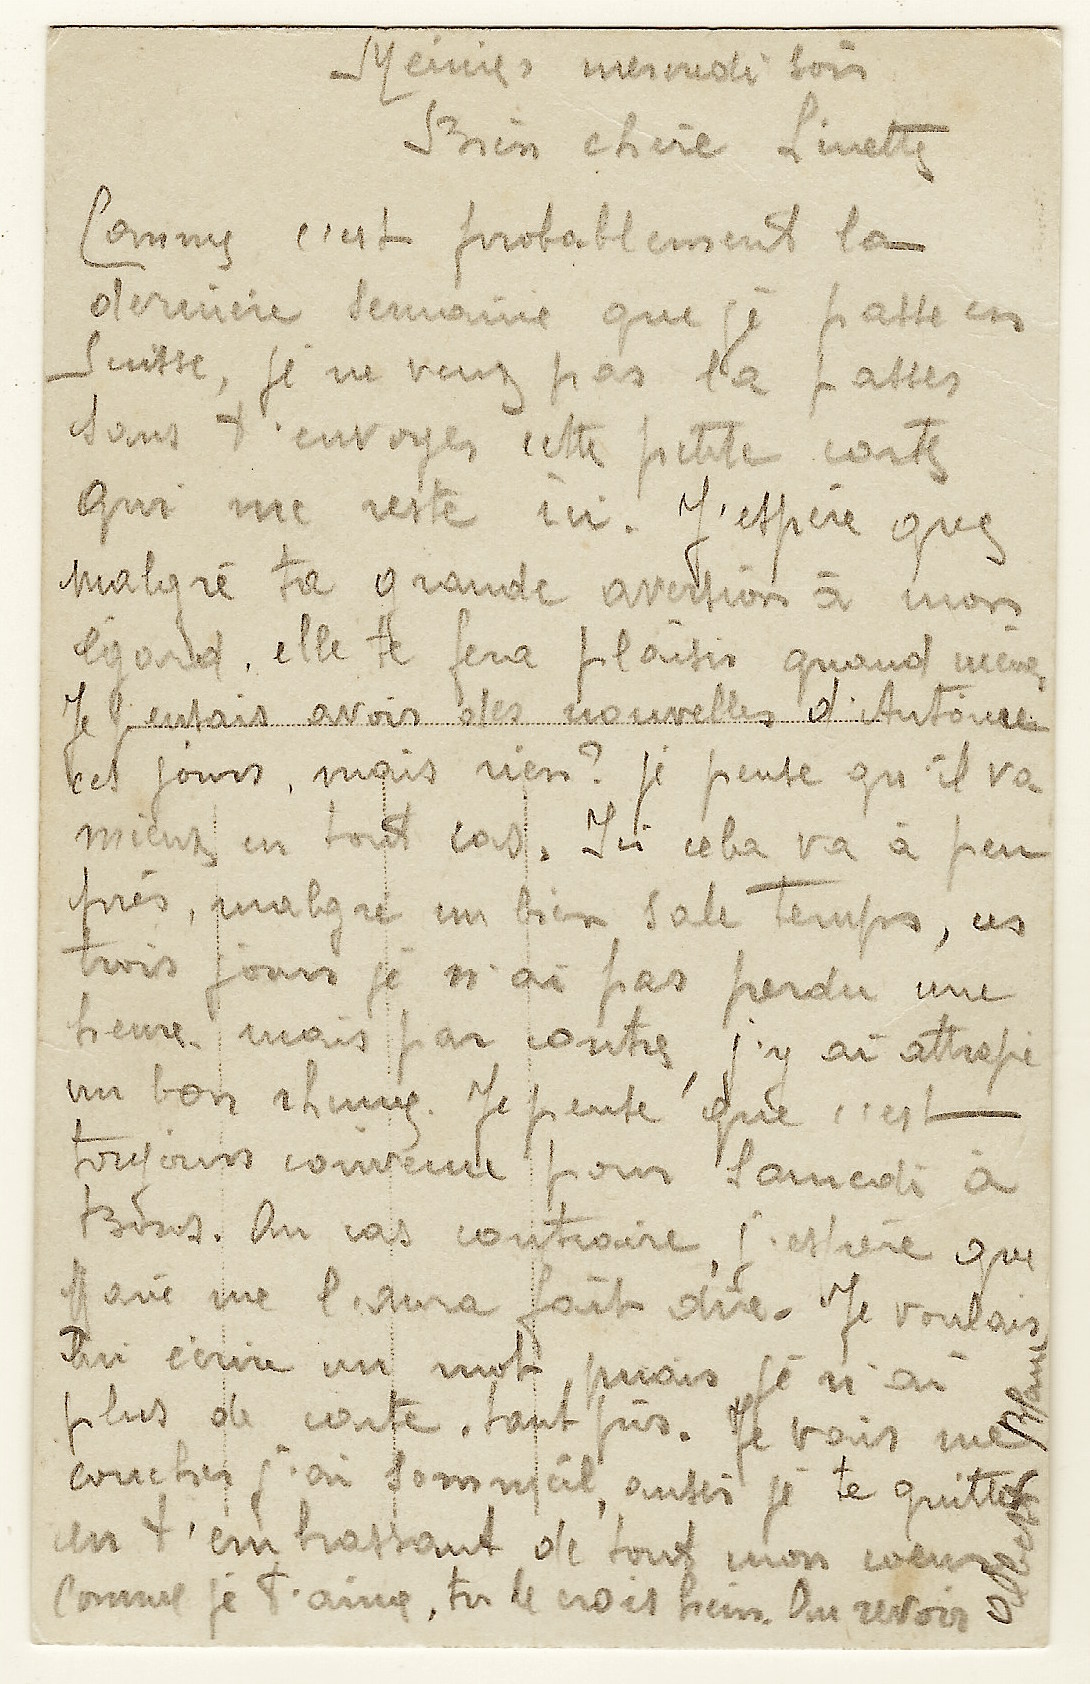 Meinier mercredi soir
Bien chère Linette
Comme c'est probablement la
dernière semaine que je passe en
Suisse, je ne veux pas la passer
sans t'envoyer cette petite carte
qui me reste ici. J'espère que
malgré ta grande aversion à mon
égard, elle te fera plaisir quand même
Je pensais avoir des nouvelles d'Antoine
ces jours, mais rien? je pense qu'il va
mieux en tout cas. Ici cela va à peu
près, malgré un bien sale temps, ces
trois jours je n'ai pas perdu une
heure. mais par contre, j'y ai attrapé
un bon rhume. Je pense que c'est
toujours convenu pour samedi à
Bons. Au cas contraire, j'espère que
me l'aura fait dire. Je voulais
lui écrire un mot, mais je n'ai
plus de carte, tant pis. Je vais me
coucher j'ai sommeil, aussi je te quitte
en t'embrassant de tout mon coeur
comme je t'aime, tu le crois hein. Au revoir